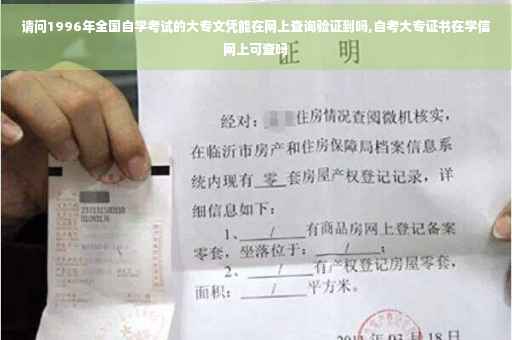 请问1996年全国自学考试的大专文凭能在网上查询验证到吗,自考大专证书在学信
网上可查吗
证 明
经对: 住房情况查阅微机核实,
在临沂市房产和住房保障局档案信息系
统内现有 零 套房屋产权登记记录,详
细信息如下:
1、 / 有商品房网上登记备案
零套,坐落位于: / ;
2、 / 有产权登记房屋零套,
面积: / 平方米。
03月18日